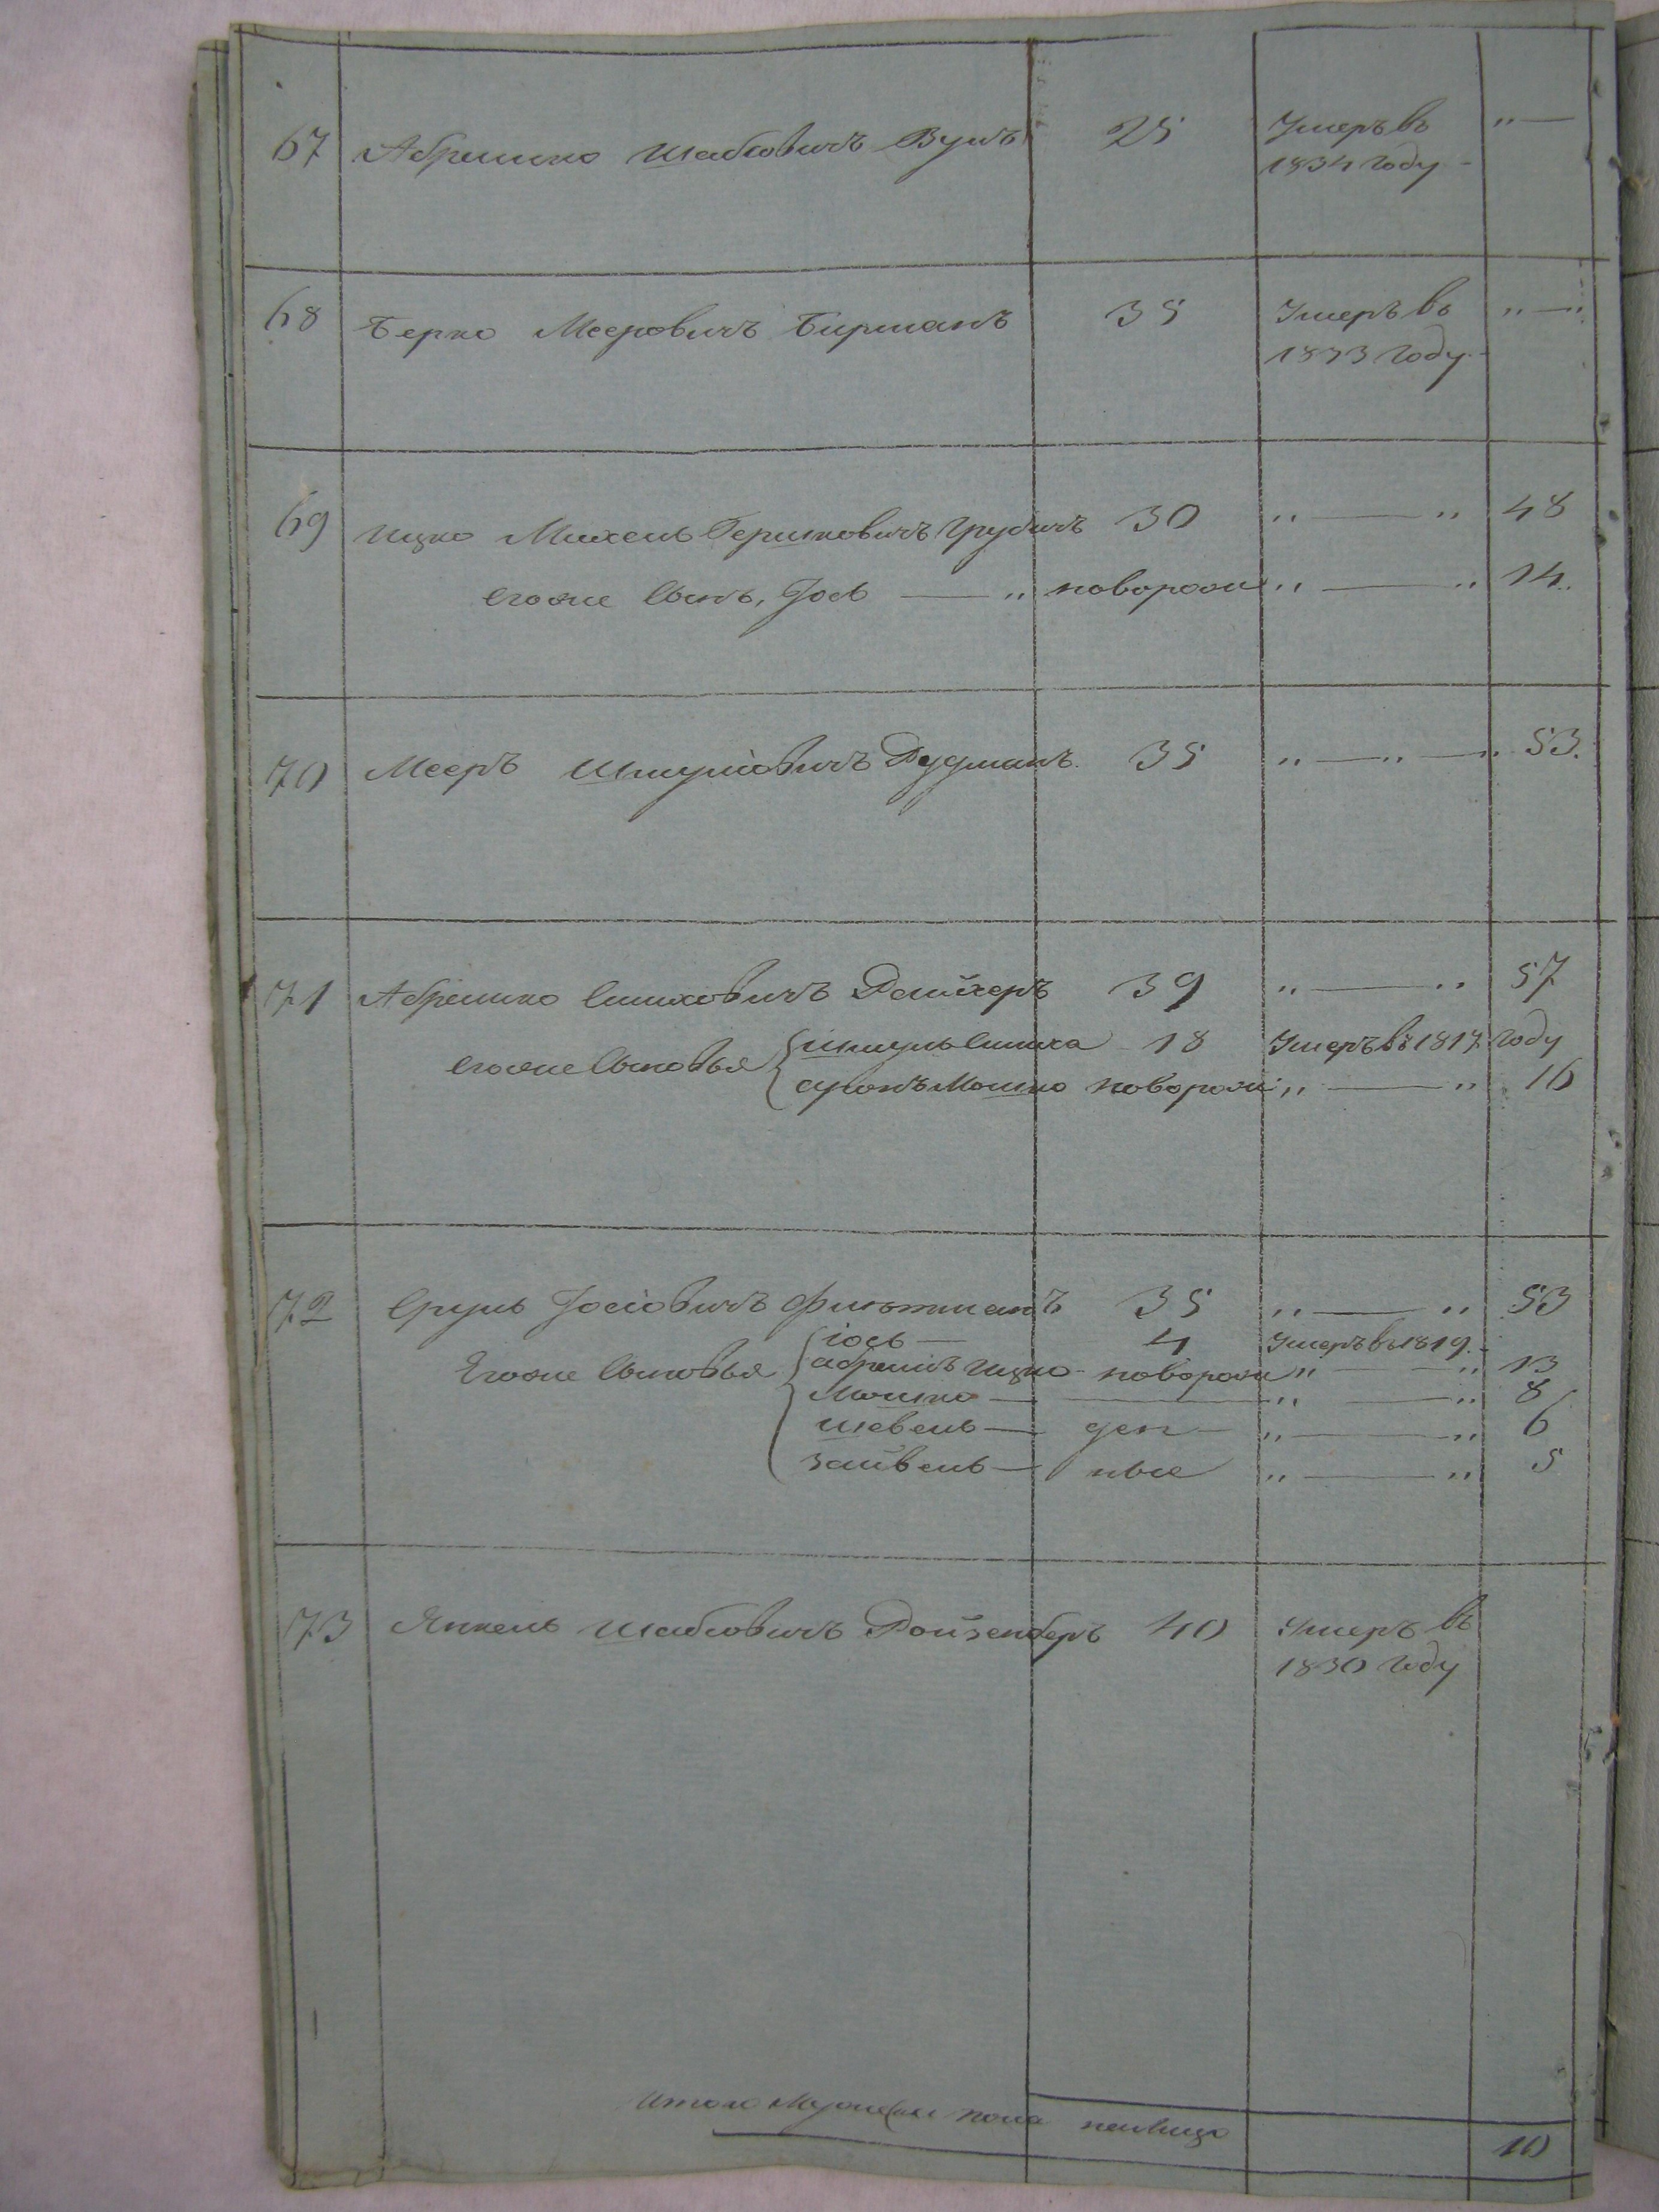 67 Абрамко Шабсовичъ Вуль 25 Умеръ въ „—
1834 году -
68 Берко Мееровичъ Бирманъ 35 Умеръ въ „—„
1833 году -
69 Ицко Михель Гершковичъ 30 „ — „ 48
егоже сынъ, Іось — „ новорож „ — „ 14
70 Мееръ Шмулiовичъ Рудманъ 35 „—„—„ 53.
71 Абрамко Симховичъ 39 „ — „ 57
егоже сыновья Шмуль Симха 18 Умеръ въ 1817 году
аронъ Мошко новорож „ — „ 16
72 Сруль Іосіовичъ 35 „ — „ 53
Егоже сыновья іось — 4 Умеръ въ 1819.
абрамъ Ицко новорож „ — „ 13
Мошко — „ — „ 8
шевель — ден — „ — „ 6
зайвель — ные „ — „ 5
73 Янкель Шабсовичъ Ройзенберъ 40 Умеръ въ
1830 году
Итого Мужеска пола налицо 10